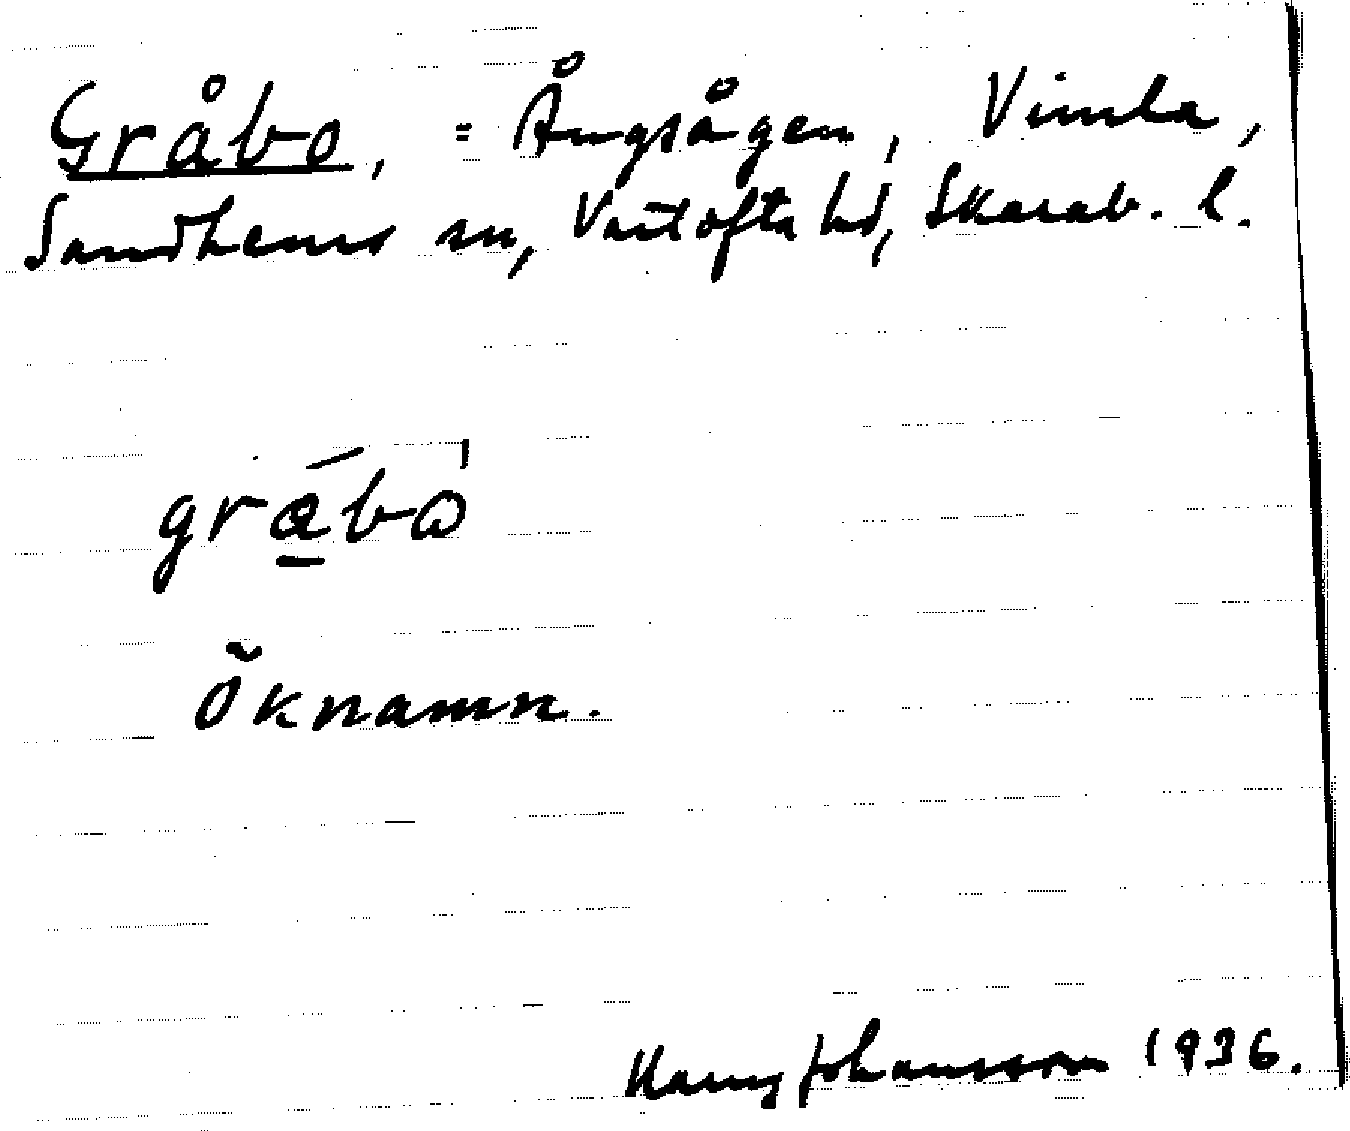 Gråbo, = Ångsågen, Vimla,
Sandhems sn, Vartofta hd, Skarab. l.
Öknamn.
Harry Johansson 1936.